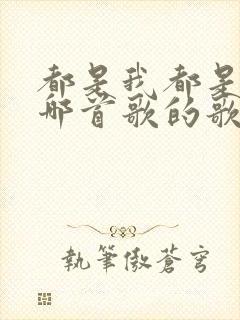 都是我都是
哪首歌的歌
執筆傲蒼穹